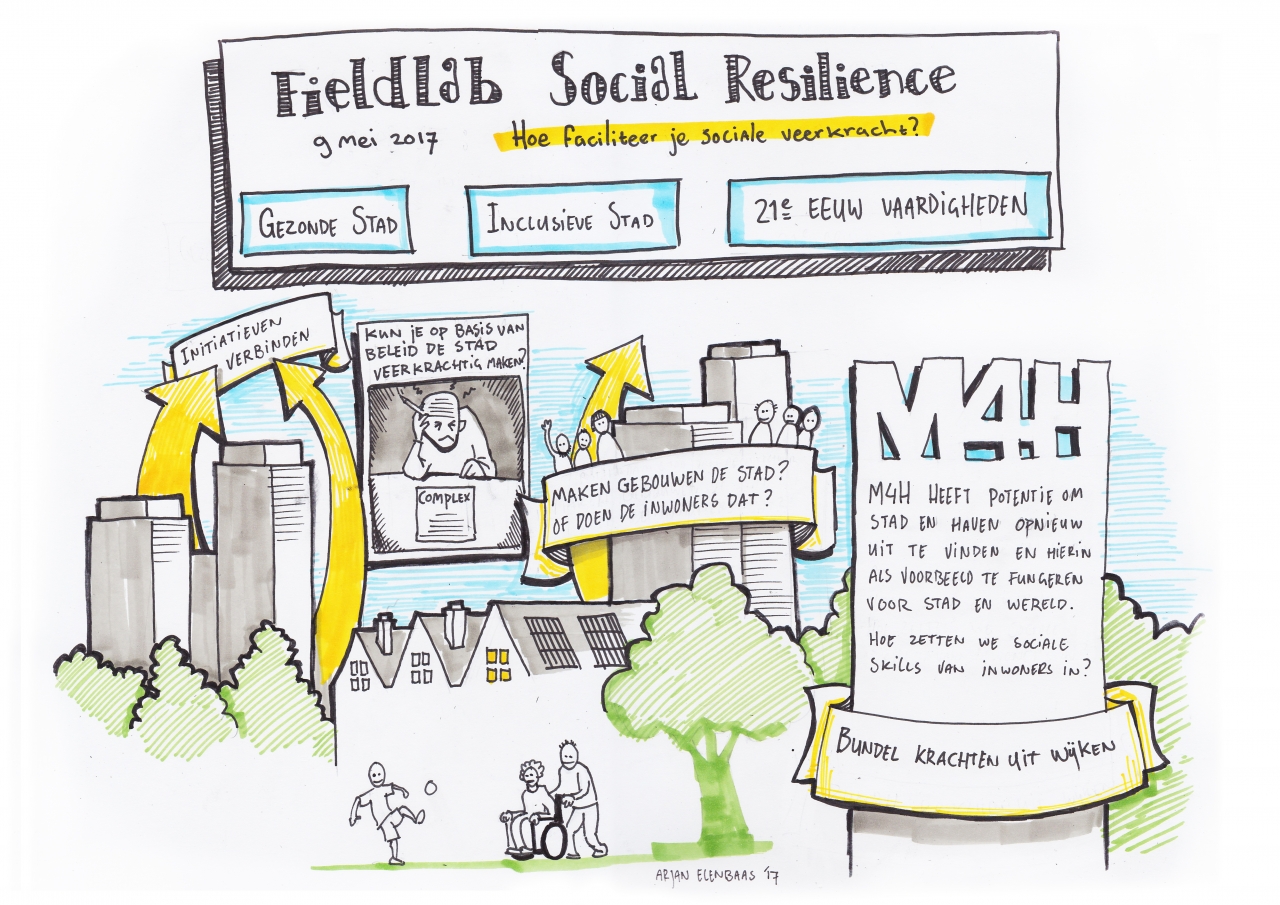 FieldLab Social Resilience
9 mei 2017
Hoe faciliteer je sociale veerkracht?
GEZONDE STAD
INCLUSIEVE STAD
21e EEUW VAARDIGHEDEN
INITIATIEVEN
VERBINDEN
KUN JE OP BASIS VAN
BELEID DE STAD
VEERKRACHTIG MAKEN?
COMPLEX
MAKEN GEBOUWEN DE STAD?
OF DOEN DE INWONERS DAT?
M4H
M4H HEEFT POTENTIE OM
STAD EN HAVEN OPNIEUW
UIT TE VINDEN EN HIERIN
ALS VOORBEELD TE FUNGEREN
VOOR STAD EN WERELD.
HOE ZETTEN WE SOCIALE
SKILLS VAN INWONERS IN?
BUNDEL KRACHTEN UIT WIJKEN
ARJAN ELENBAAS '17